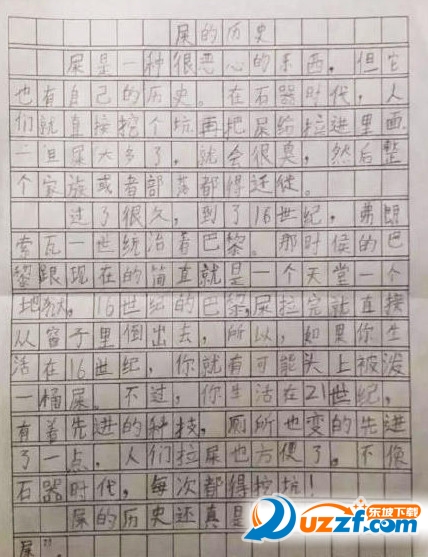 屎的历史
屎是一种很恶心的东西。但它
也有自己的历史。在石器时代，人
们就直接挖个坑再把屎给拉进里面，
一旦屎太多了，就会很臭，然后整
个家族或者部落都得迁徙。
过了很久，到了16世纪，弗朗
索瓦一世统治着巴黎。那时侯的巴
黎跟现在的简直就是一个天堂一个
地狱。16世纪的巴黎，屎拉完就直接
从窗子里倒出去，所以，如果你生
活在16世纪，你就有可能头上被泼
一桶屎。不过，你生活在21世纪，
有着先进的科技，厕所也变的先进
了一点，人们拉屎也方便了，不像
石器时代，每次都得挖坑！
屎的历史还真是
屎"。
乐坡下载
UZZF.com